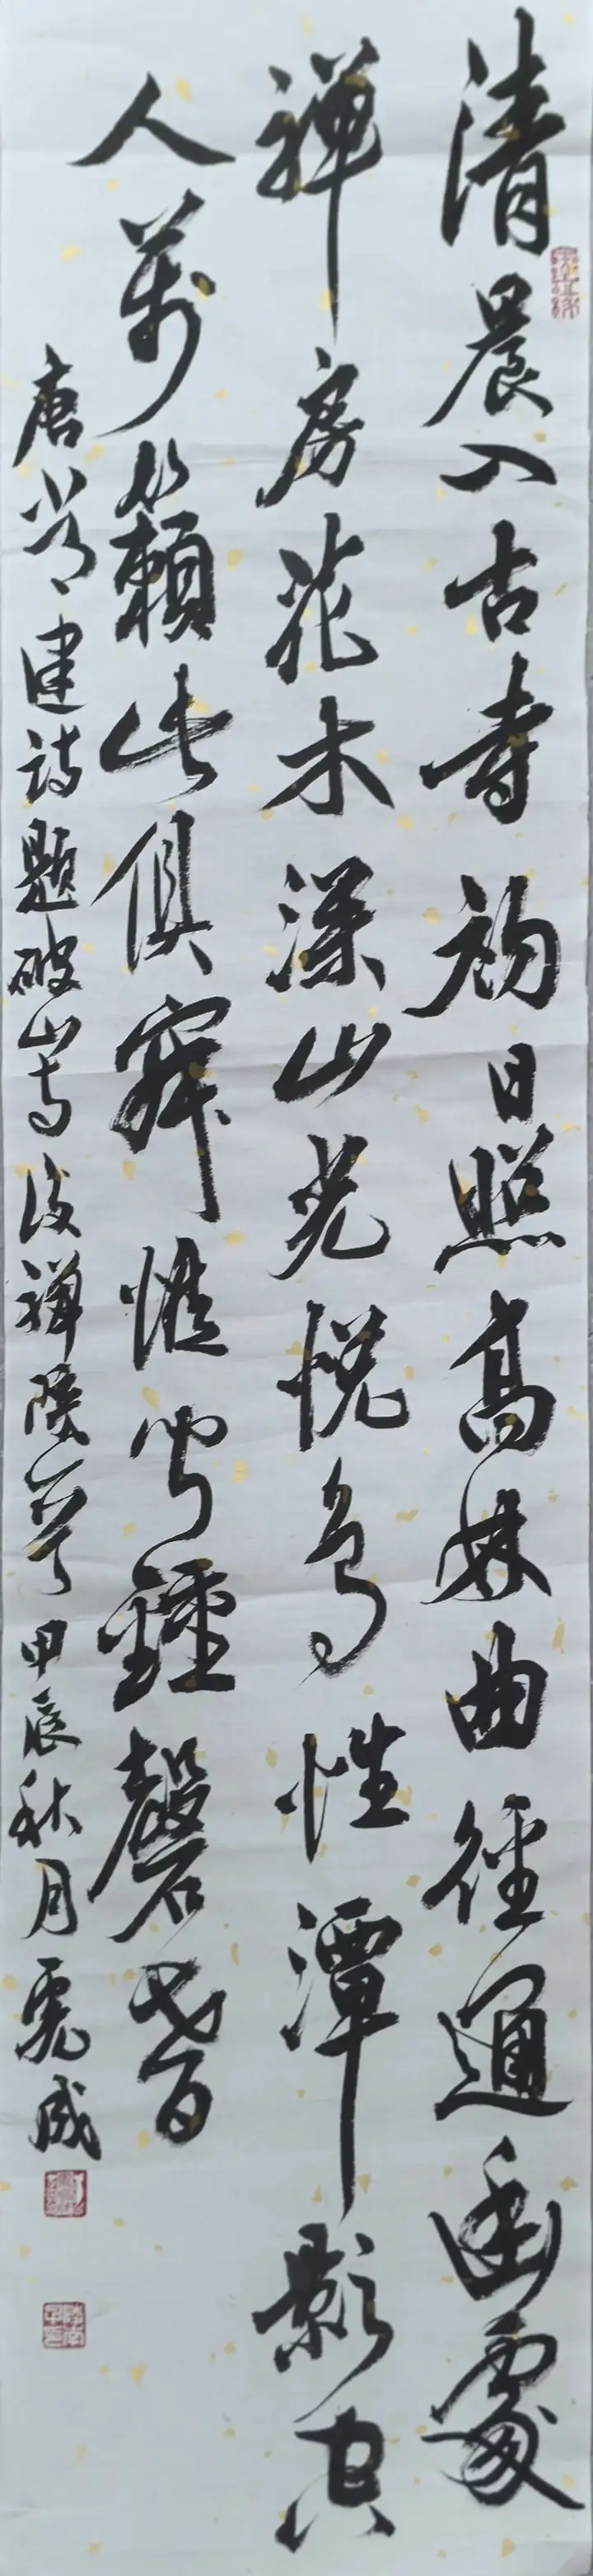 清晨入古寺初日照高林曲徑通幽處
禪房花木深山光悅鳥性潭影空
人萬籟此俱寂惟聞鍾磬音
唐常建詩題破山寺後禪院一首甲辰秋月成